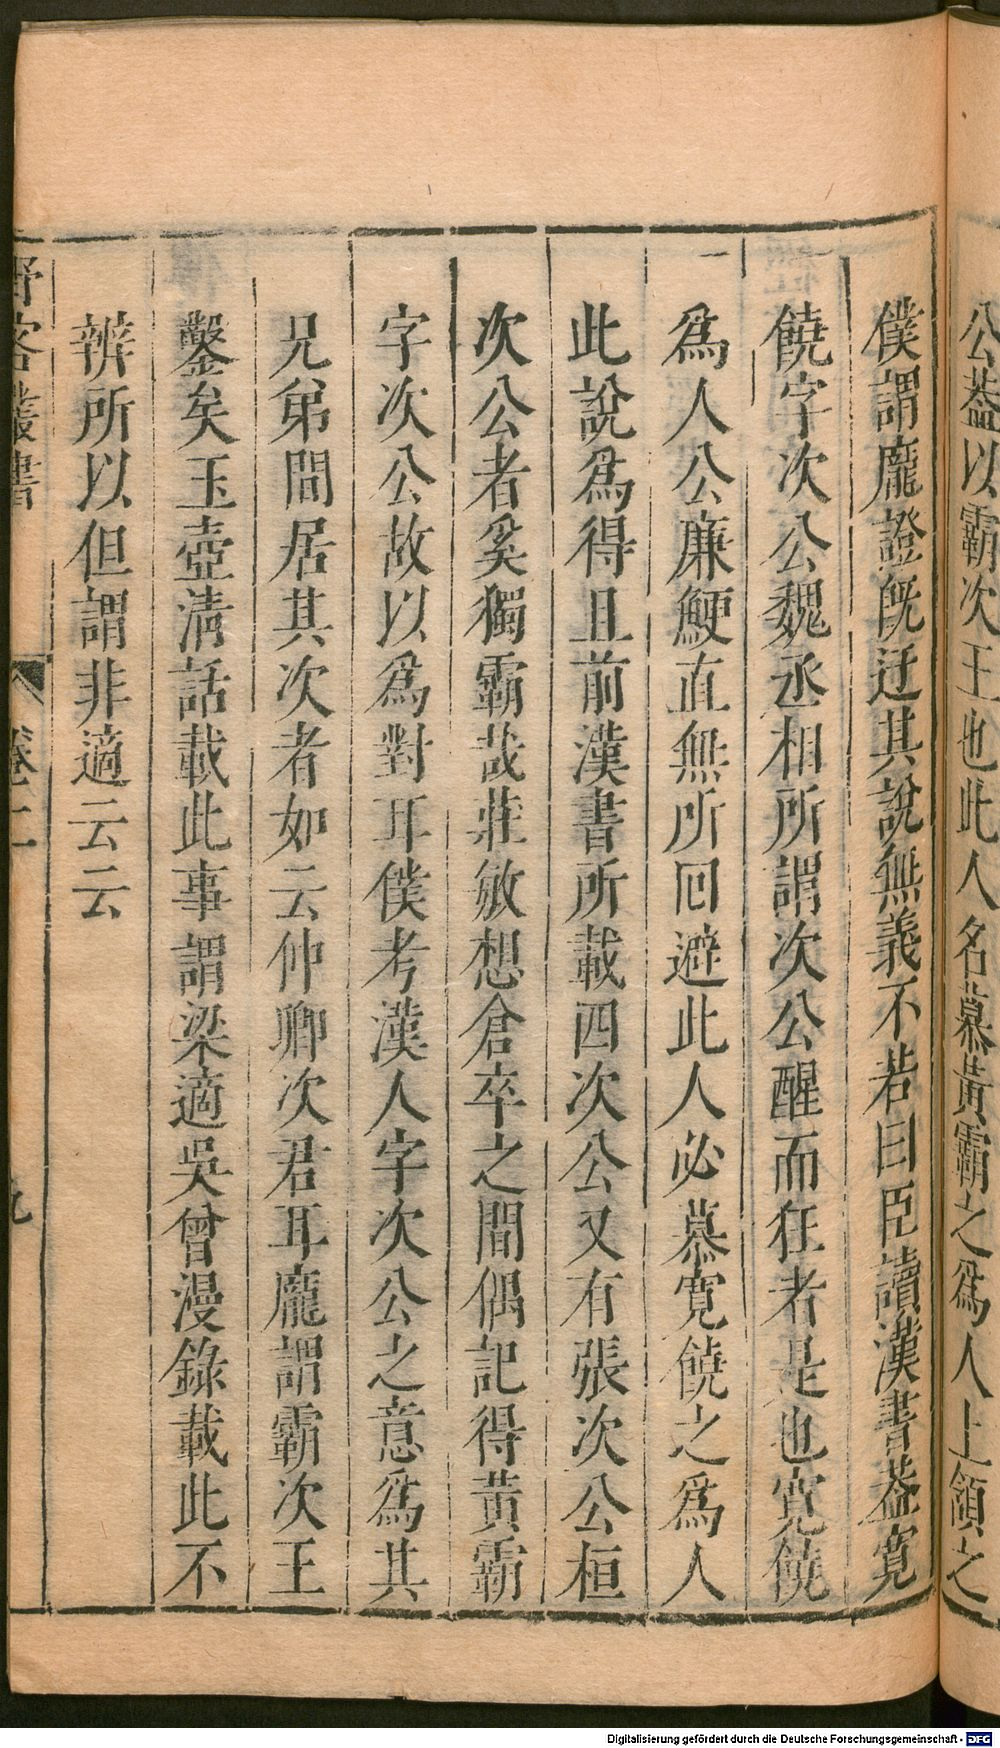 公葢以霸次王也此人名慕黃霸之爲人上領之
僕謂龐證旣迂其說無義不若曰臣讀漢書葢寛
饒字次公魏丞相所謂次公醒而狂者是也寛饒
爲人公廉鯁直無所回避此人必慕寛饒之爲人
此說爲得且前漢書所載四次公又有張次公桓
次公者奚獨霸哉莊敏想倉卒之間偶記得黃霸
字次公故以爲對耳僕考漢人字次公之意爲其
兄弟間居其次者如云仲卿次君耳龐謂霸次王
鑿矣玉壺淸話載此事謂梁適吳曾漫錄載此不
辨所以但謂非適云云
野客叢書 卷二 九
Digitalisierung gefördert durch die Deutsche Forschungsgemeinschaft - DFG